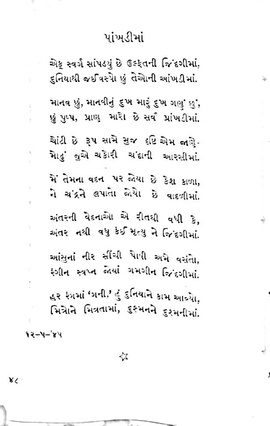 પાંખડીમાં
એક સ્વર્ગ સાંપડ્યું છે ઉલ્ફતની જિંદગીમાં,
દુનિયાથી જઈ વસ્યો છું તેઓની આંખડીમાં.
માનવ છું, માનવીનું દુખ મારું દુખ ગણું છું,
છું પુષ્પ, પ્રાણ મારો છે સર્વ પાંખડીમાં.
ચોંટી છે રૂપ સામે મુજ દૃષ્ટિ એમ જાણે-
મોઢું જુએ ચકોરી ચંદાની આરસીમાં.
મેં તેમના વદન પર જોયા છે કેશ કાળા,
ને ચંદ્રને લપાતો જોયો છે વાદળીમાં.
અંતરની વેદનાઓ એ રીતથી વધી કે,
અંતર નથી વધુ કંઈ મૃત્યુ ને જિંદગીમાં.
આંસુનાં નીર સીંચી પોષી અમે વસંતો,
રંગીન સ્વપ્ન જોયાં ગમગીન જિંદગીમાં.
હર રંગમાં 'ગની.' તું દુનિયાને કામ આવ્યો,
મિત્રોને મિત્રતામાં, દુશ્મનને દુશ્મનીમાં.
૧૨-૫-૪૫
૪૮